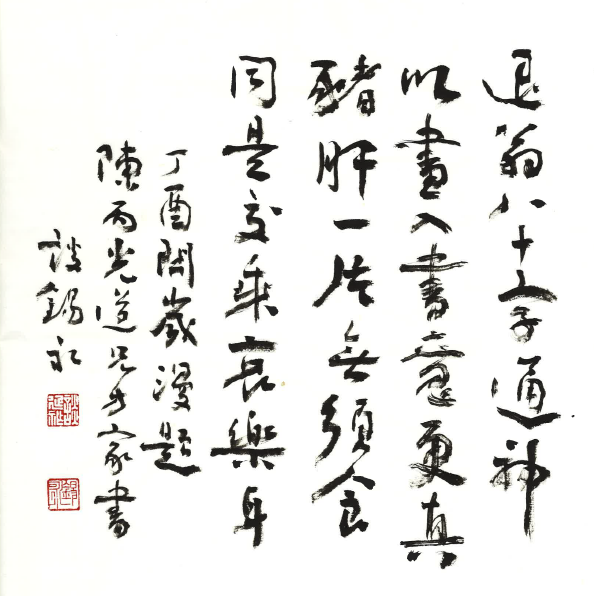 退翁八十字通神
以畫入書意更真
豬肝一片無須食
同是交乘哀樂身
丁酉閏歲漫題
陳丙光道兄方家書
談錫永